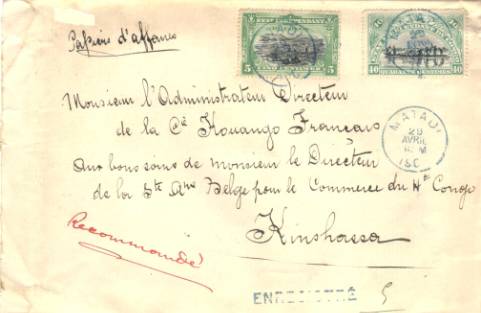 Papiers d'affaires
5 5
40 QUARANTE CENTIMES 40
Monsieur l'Administrateur Directeur
de la Cie Kouango Français
MATADI
28
AVRIL
Aux bons soins de monsieur le Directeur
de la Sté Ame Belge pour le Commerce du Ht Congo
Kinshassa
Recommandé
ENREGISTRÉ